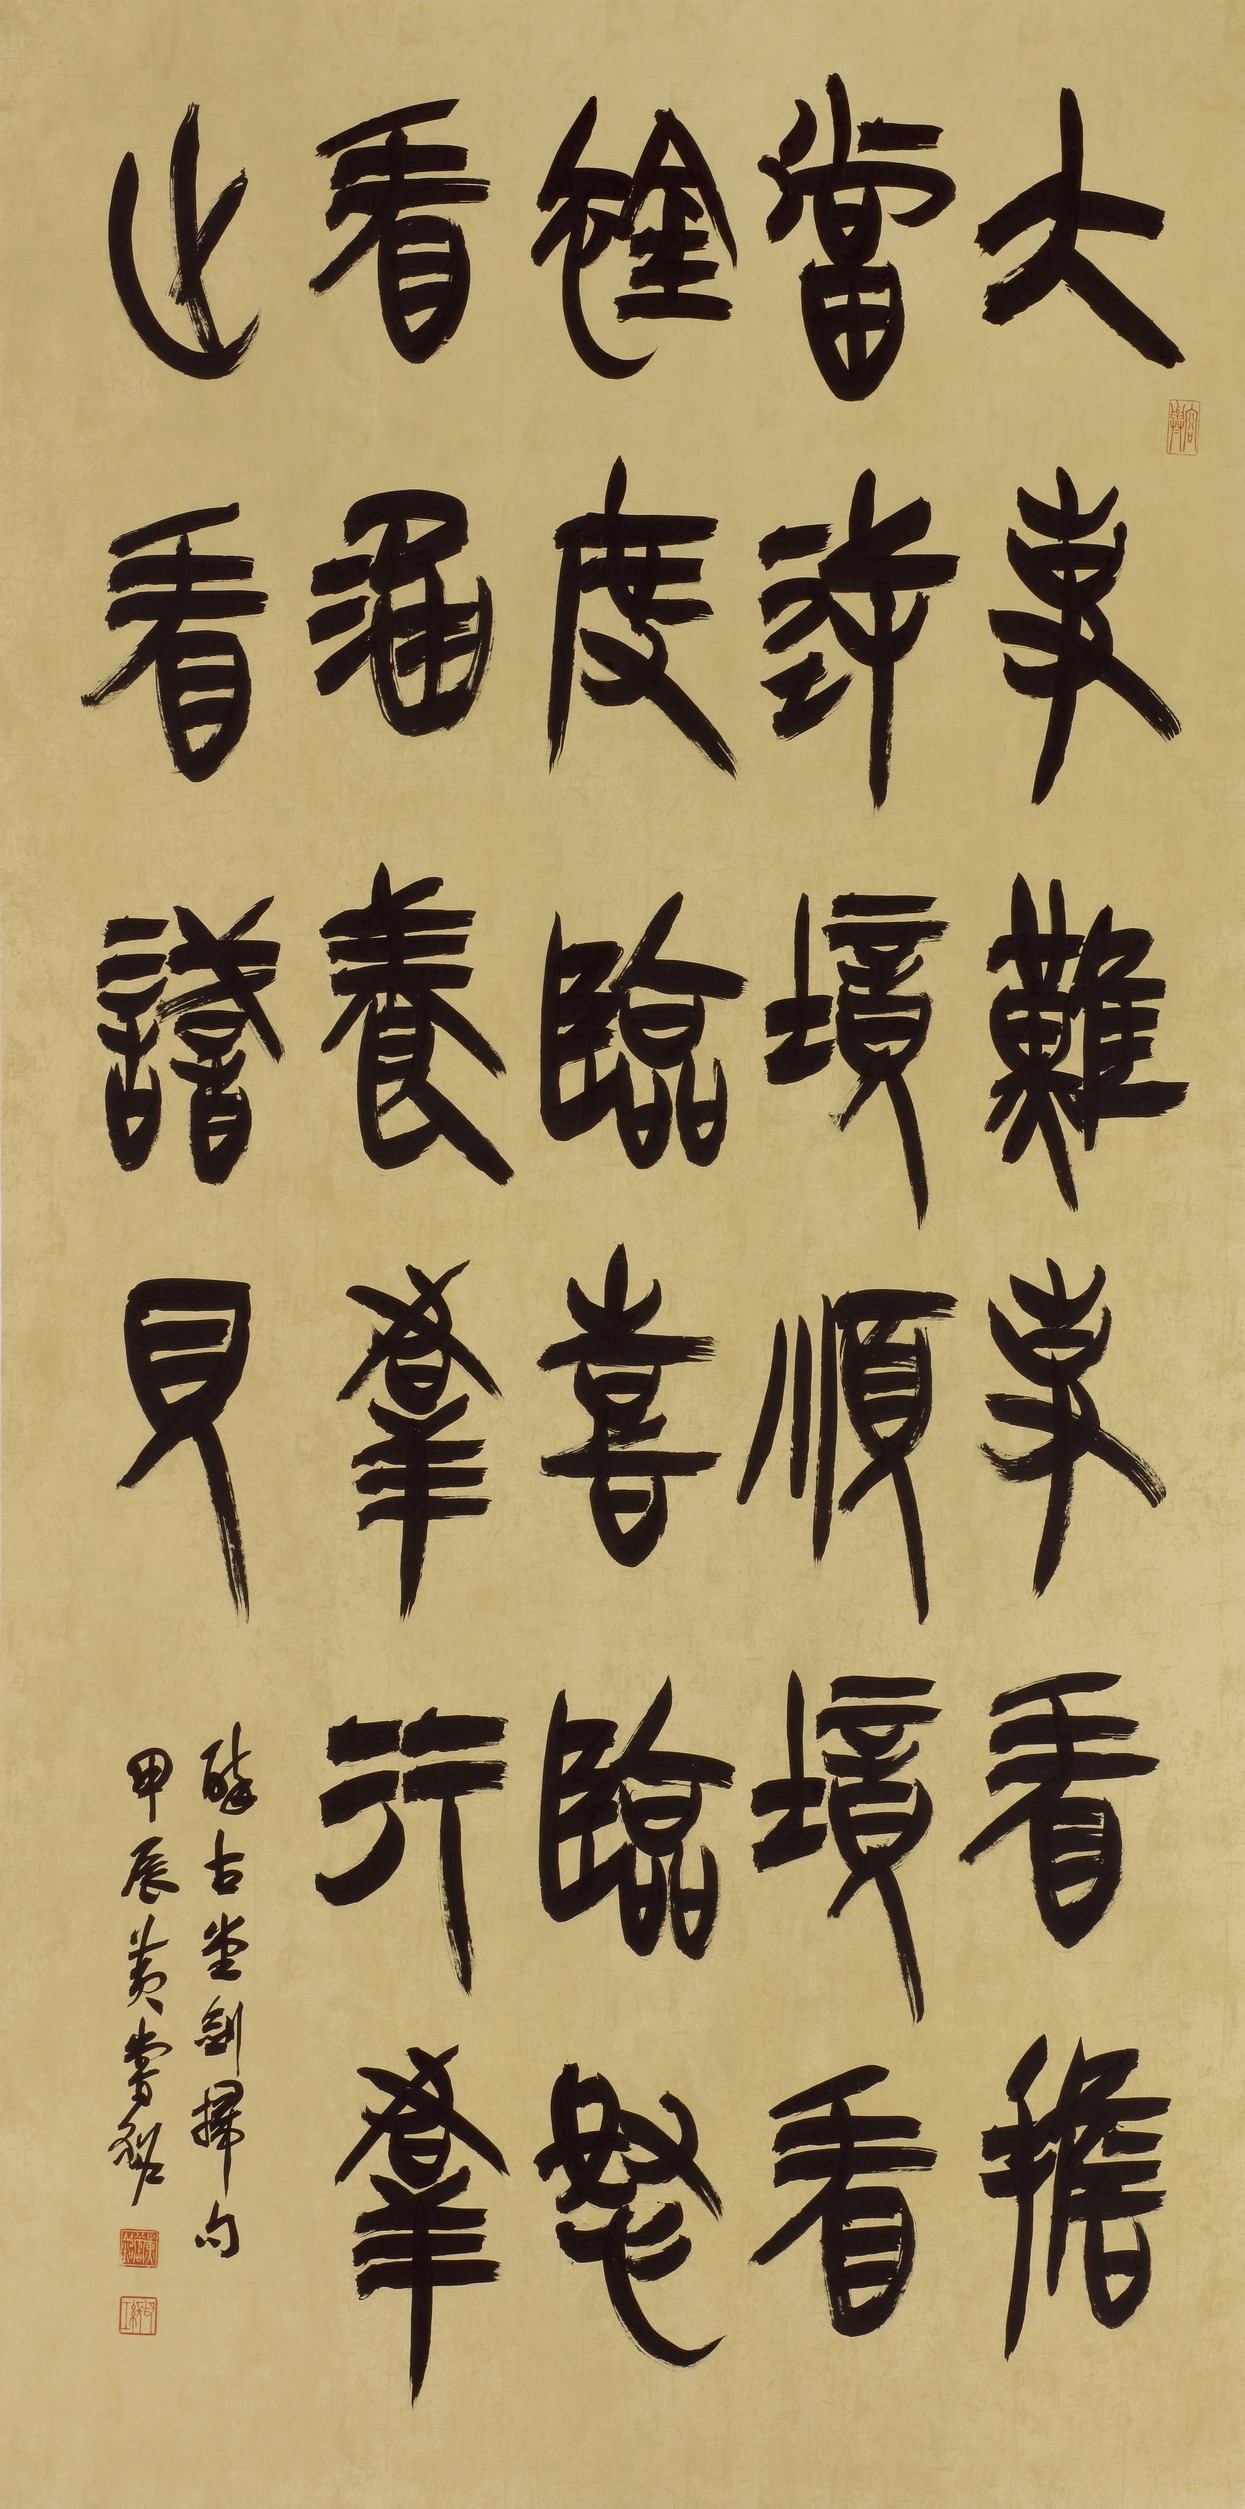 大事難事看擔
當逆境順境看
襟度臨喜臨怒
看涵養羣行羣
止看識見
醉古堂劍掃句
甲辰黃嘗銘